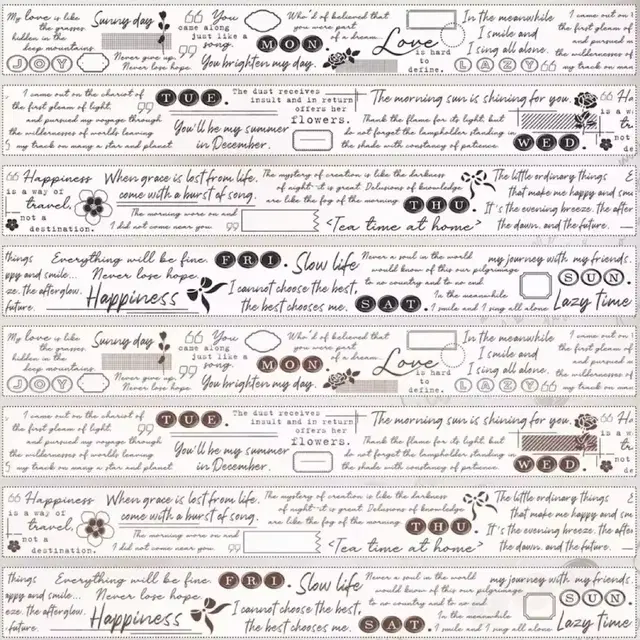 My love is like
the grasses
hidden in the
deep mountains.
JOY
Sunny day
Never give up.
Never lose hope.
You
came along
just like a
song.
You brighten my day.
MON
Who'd of believed that
you were part
of a dream..
Love
is hard
to
define.
In the meanwhile
I smile and
I sing all alone.
LAZY
I came out on
the first gleam of
and pursued my
the wilderness
my track on man
I came out on the chariot of
the first gleam of light,
and pursued my voyage through
the wildernesses of worlds leaving
my track on many a star and planet
TUE.
You'll be my summer
in December.
The dust receives
insult and in return
offers her
flowers.
The morning sun is shining for you.
Thank the flame for its light, but
do not forget the lampholder standing in
the shade with constancy of patience.
WED.
Ha
is a w
not
de
Happiness
is a way of
travel,
not a
destination.
When grace is lost from life.
come with a burst of song.
The morning wore on and
I did not come near you.
The mystery of creation is like the darkness
of night-it is great. Delusions of knowledge
are like the fog of the morning
THU.
<Tea time at home>
The little ordinary things
that make me happy and sm
It's the evening breeze. the after
the dawn. and the future.
things
ppy and smile...
ze. the afterglow.
future.
Everything will be fine.
Never lose hope.
Happiness
FRI.
I cannot choose the best,
the best chooses me.
Slow life
Never a soul in the world
would know of this our pilgrimage
to no country and to no end
SAT.
In the meanwhile
I smile and I sing all alone
my journey with my friends.
SUN.
Lazy time
My love is like
the grasses
hidden in the
deep mountains.
JOY
Sunny day
Never give up.
Never lose hope.
You
came along
just like a
song.
You brighten my day.
MON
Who'd of believed that
you were part
of a dream..
Love
is hard
to
define.
In the meanwhile
I smile and
I sing all alone.
LAZY
I came out on
the first gleam of
and pursued my
the wilderness
my track on man
I came out on the chariot of
the first gleam of light,
and pursued my voyage through
the wildernesses of worlds leaving
my track on many a star and planet
TUE.
You'll be my summer
in December.
The dust receives
insult and in return
offers her
flowers.
The morning sun is shining for you.
Thank the flame for its light, but
do not forget the lampholder standing in
the shade with constancy of patience.
WED.
Ha
is a w
not
de
Happiness
is a way of
travel,
not a
destination.
When grace is lost from life.
come with a burst of song.
The morning wore on and
I did not come near you.
The mystery of creation is like the darkness
of night-it is great. Delusions of knowledge
are like the fog of the morning
THU.
<Tea time at home>
The little ordinary things
that make me happy and sm
It's the evening breeze. the after
the dawn. and the future.
things
ppy and smile...
eze. the afterglow.
future.
Everything will be fine.
Never lose hope.
Happiness
FRI.
I cannot choose the best,
the best chooses me.
Slow life
Never a soul in the world
would know of this our pilgrimage
to no country and to no end
SAT.
In the meanwhile
I smile and I sing all alone
my journey with my friends.
SUN.
Lazy time